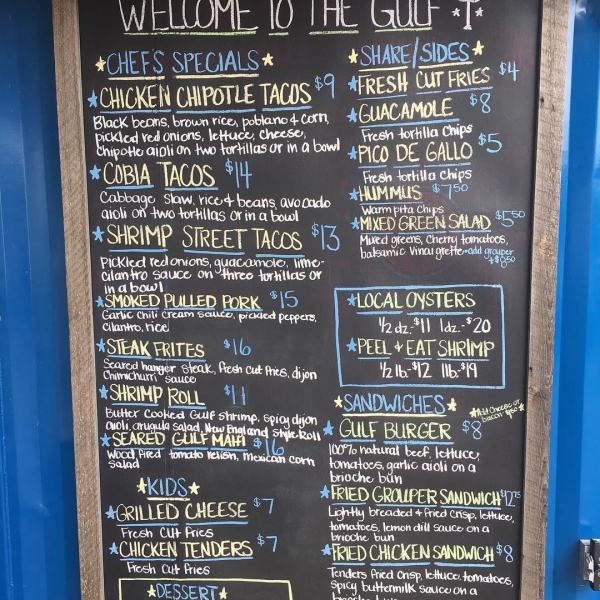 WELCOME TO THE GULF
CHEF'S SPECIALS
CHICKEN CHIPOTLE TACOS $9
Black beans, brown rice, poblano & corn,
pickled red onions, lettuce, cheese,
chipotle aioli on two tortillas or in a bowl
COBIA TACOS $14
Cabbage slaw, rice & beans, avocado
aioli on two tortillas or in a bowl
SHRIMP STREET TACOS $13
Pickled red onions, guacamole, lime-
cilantro sauce on three tortillas or
in a bowl
SMOKED PULLED PORK $15
Garlic chili cream sauce, pickled peppers,
cilantro, rice
STEAK FRITES $16
Seared hanger steak, fresh cut fries, dijon
chimichurri sauce
SHRIMP ROLL $11
Butter cooked Gulf shrimp, spicy dijon
aioli, arugula salad, New England style Roll
SEARED GULF MAHI $16
Wood fired tomato relish, mexican corn
salad
KIDS
GRILLED CHEESE $7
Fresh Cut Fries
CHICKEN TENDERS $7
Fresh Cut Fries
DESSERT
SHARE/SIDES
FRESH CUT FRIES $4
GUACAMOLE $8
Fresh tortilla Chips
PICO DE GALLO $5
Fresh tortilla chips
HUMMUS $7.50
Warm pita Chips
MIXED GREEN SALAD $5.50
Mixed greens, cherry tomatoes,
balsamic vinaigrette - add grouper
+$8.50
LOCAL OYSTERS
1/2 dz.-$11 1dz.-$20
PEEL & EAT SHRIMP
1/2 lb-$12 1lb-$19
SANDWICHES
Add Cheese or
bacon
GULF BURGER $8
100% natural beef, lettuce,
tomatoes, garlic aioli on a
brioche bun
FRIED GROUPER SANDWICH $12.75
Lightly breaded & fried crisp, lettuce,
tomatoes, lemon dill sauce on a
brioche bun
FRIED CHICKEN SANDWICH $8
Tenders fried crisp, lettuce, tomatoes,
spicy buttermilk sauce on a